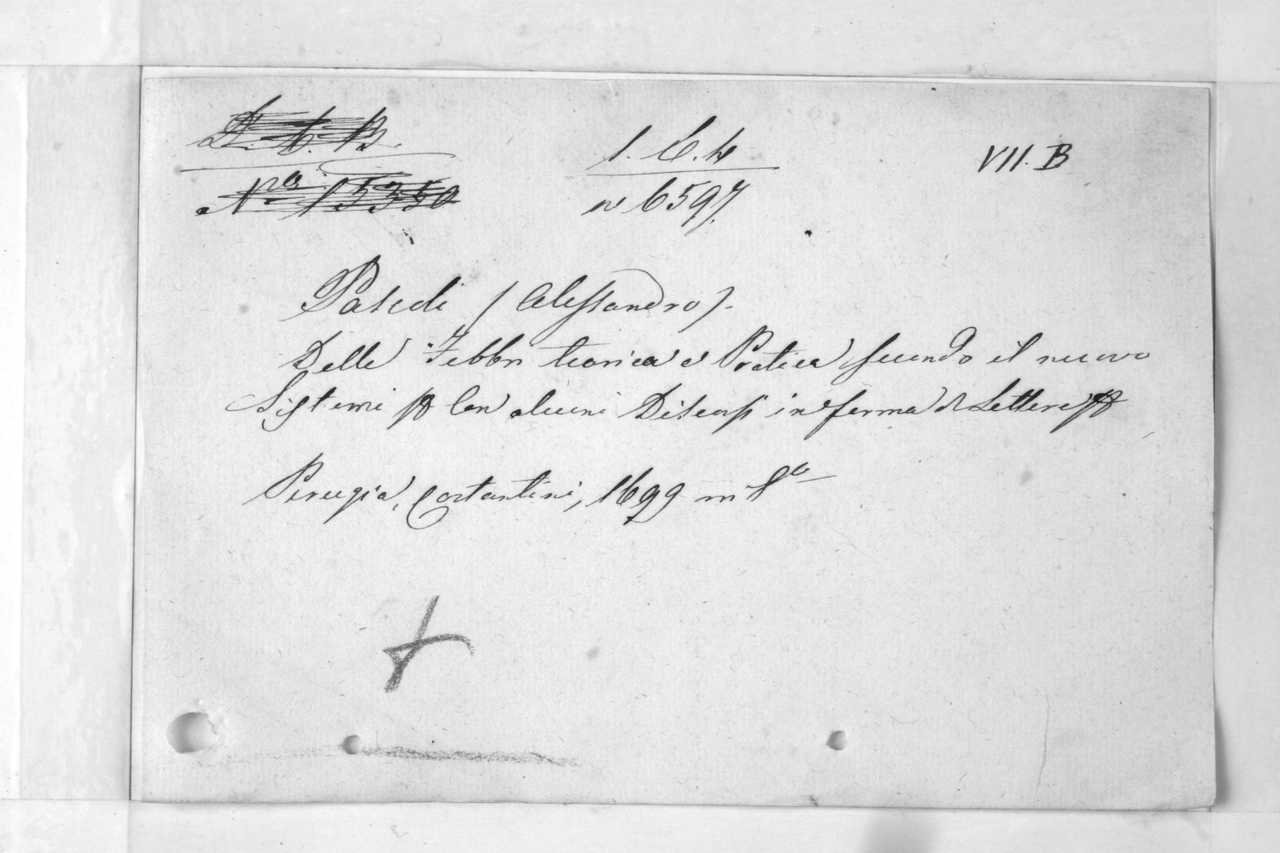 D. b. B.
No 15350
1. C. 4
n 6597.
VII. B
Pascoli (Alessandro).
Delle Febbri teorica e Pratica secondo il nuovo
Sistemi con alcuni Discorsi in forma di Lettere
Perugia, Costantini, 1699 in 8o